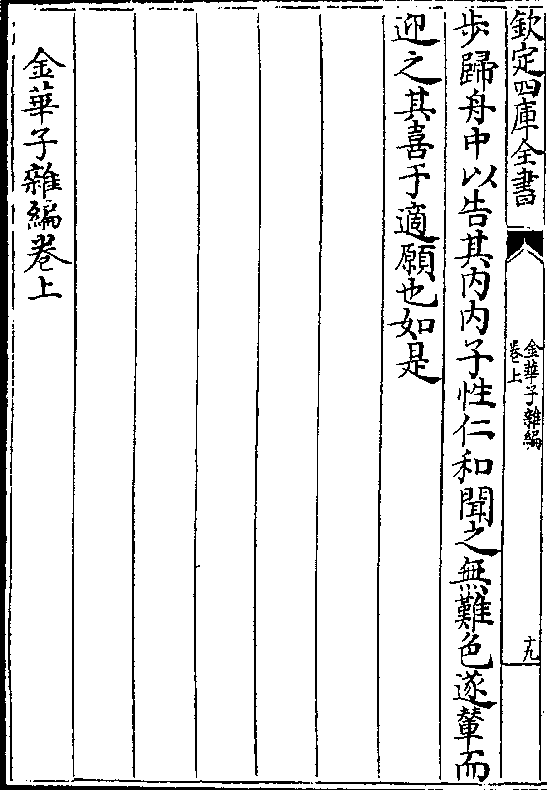 欽定四庫全書
金華子雜編
卷上
十九
步歸舟中以告其內內子性仁和聞之無難色遂輦而
迎之其喜于適願也如是
金華子雜編卷上